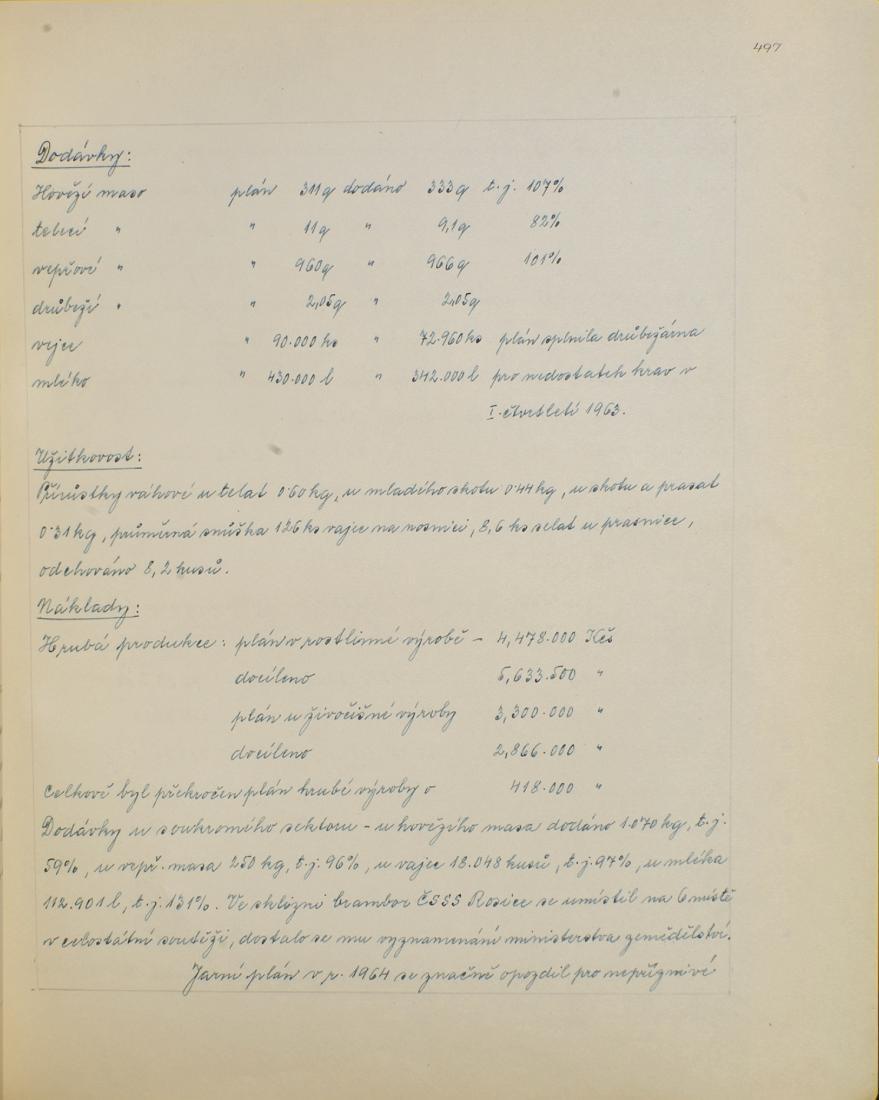 497
Dodávky:
Hovězí maso plán 311q dodáno 333q t.j. 107%
telecí " " 11q " 9,1q 82%
vepřové " " 960q " 966q 101%
drůbeží " " 2,05q " 2,05q
vejce " 90.000 ks " 72.960 ks plán splnila drůbežárna
mléko " 430.000 l " 342.000 l pro nedostatek krav v
I. čtvrtletí 1963.
Užitkovost:
Přírůstky váhové u telat 0.60 kg, u mladého skotu 0.44 kg, u skotu a prasat
0.31 kg, průměrná snůška 126 ks vajec na nosnici, 8,6 ks selat u prasnice,
odchováno 8,2 kusů.
Náklady:
Hrubá produkce: plán v rostlinné výrobě - 4,478.000 Kčs
docíleno 5,633.500 "
plán u živočišné výroby 3,300.000 "
docíleno 2,866.000 "
Celkově byl překročen plán hrubé výroby o 418.000 "
Dodávky u soukromého sektoru - u hovězího masa dodáno 1.070 kg, t.j.
59%, u vepř. masa 250 kg, t.j. 96%, u vajec 18.048 kusů, t.j. 97%, u mléka
112.901 l, t.j. 131%. Ve sklizni brambor ČSSS Rosice se umístil na 6 místě
v celostátní soutěži, dostalo se mu vyznamenání ministerstva zemědělství.
Jarní plán v r. 1964 se značně opozdil pro nepříznivé